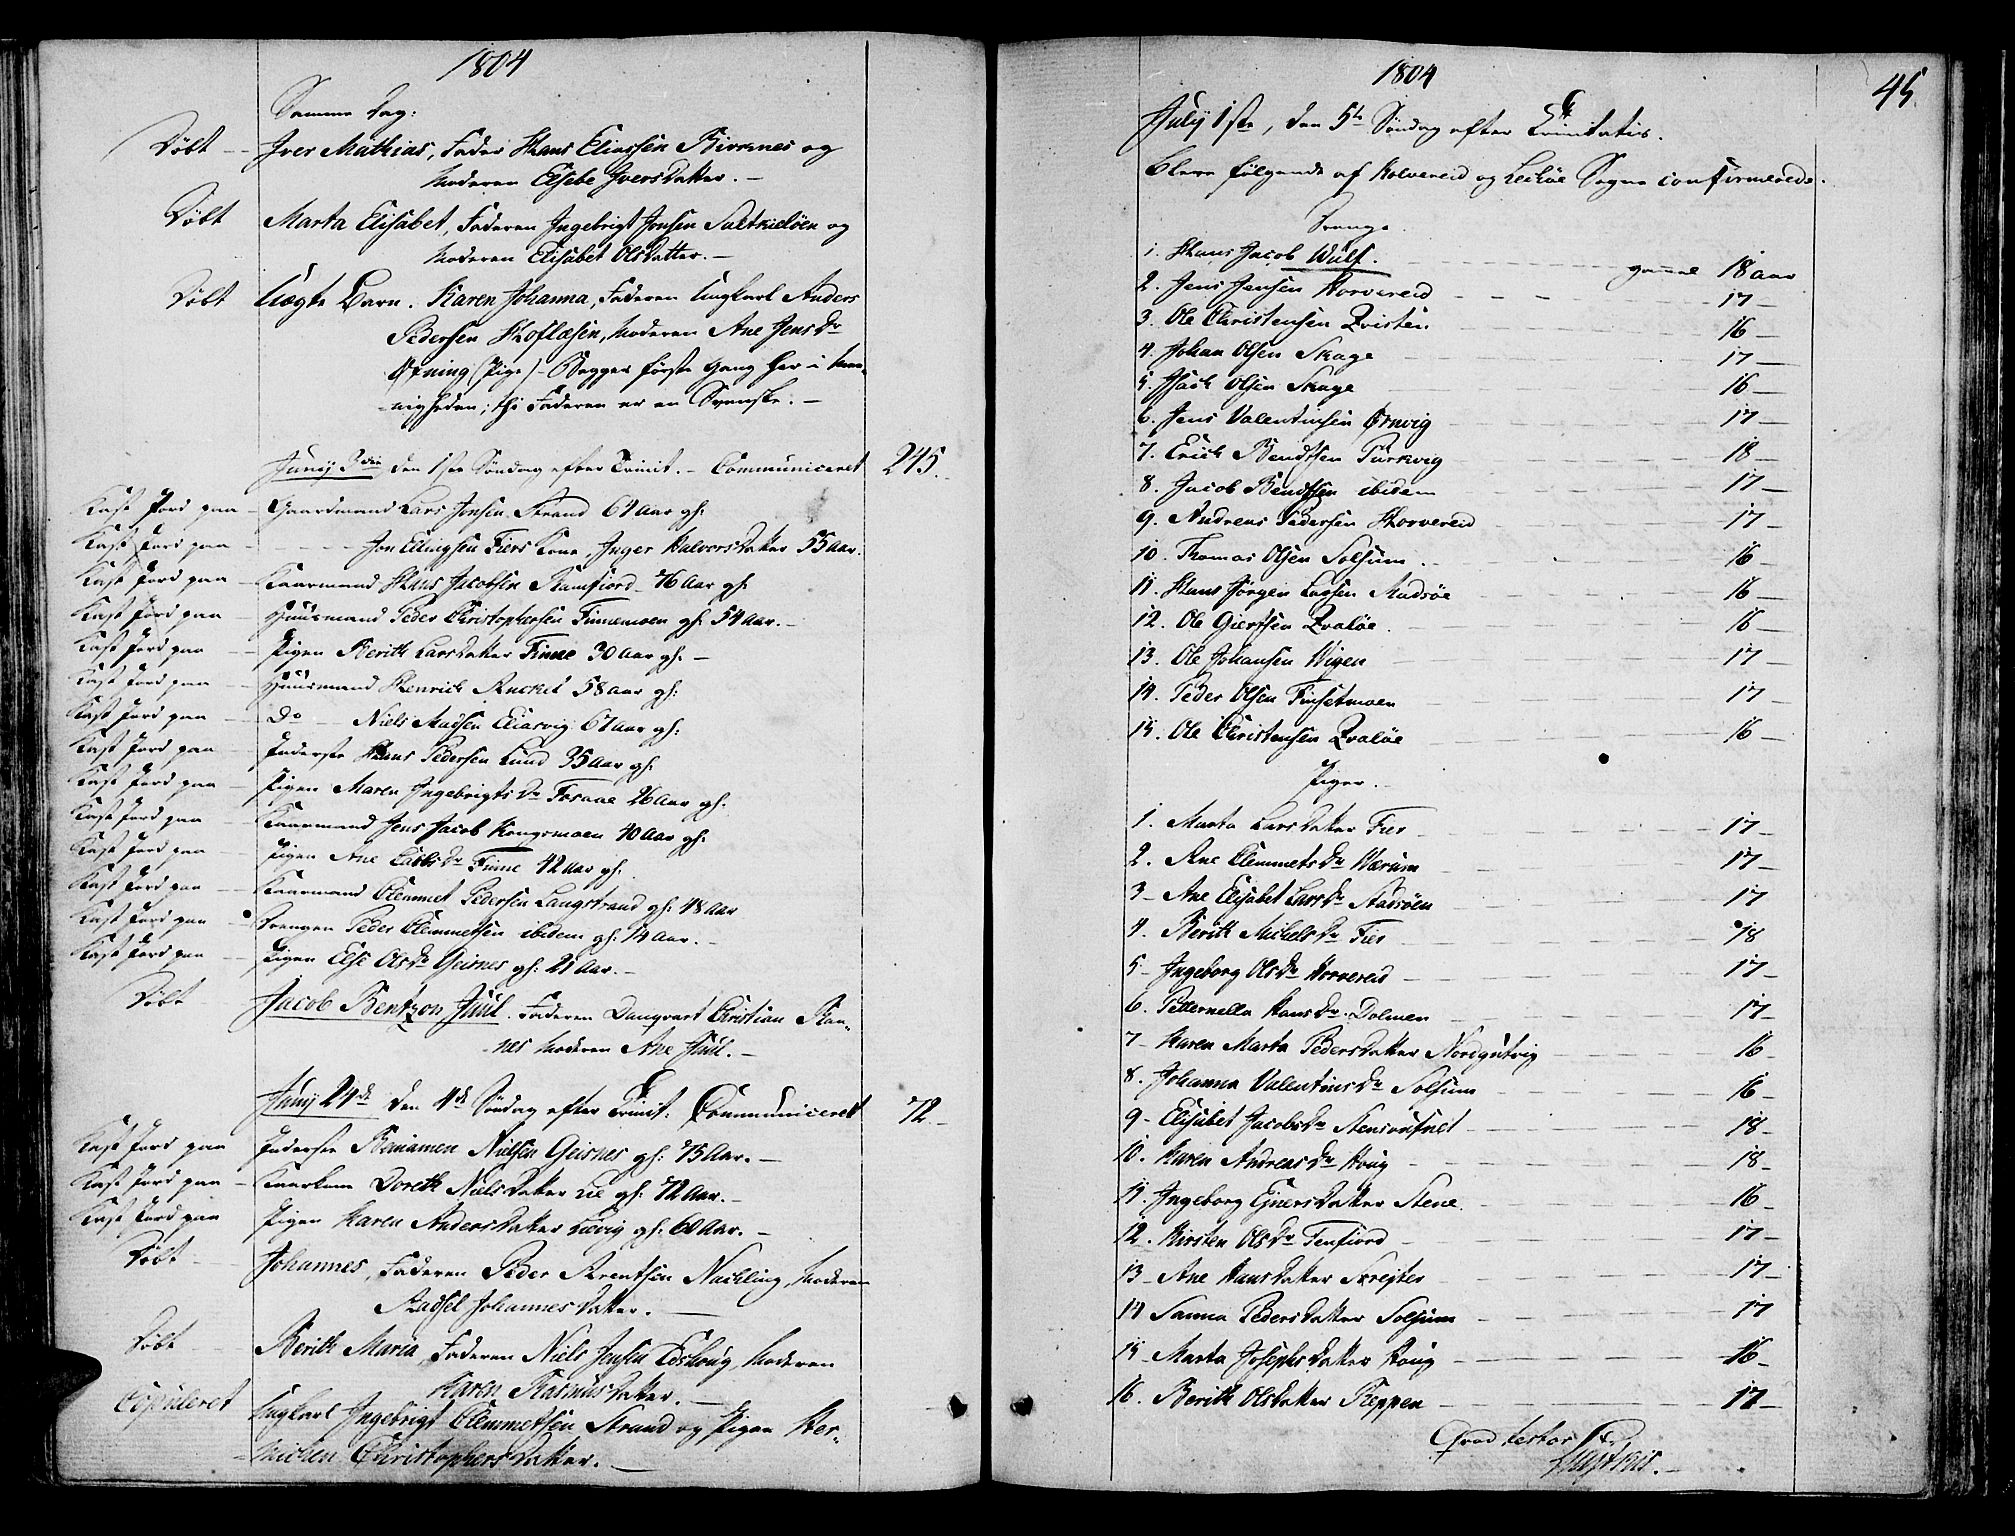 1804
Samme Dag:
Døbt Iver Mathias, Fader Hans Eliassen Birknes og
Moderen Elsebe Iversdatter.
Døbt Marta Elisabet, Faderen Ingebrigt Jonsen Saltkieløen og
Moderen Elisabet Olsdatter.
Døbt Uægte Barn. Karen Johanna, Faderen Ungkarl Anders
Pedersen Hoflæsen, Moderen Ane Jensdr
(Pige) - Begges første Gang her i Me-
nigheden; thi Faderen er en Svenske.
Junij 3die den 1ste Søndag efter Trinit. - Communiceret 245.
Kast Jord paa Gaardmand Lars Jonsen Strand 67 Aar gl:
Kast Jord paa Jon Ellingsen Fiers Kone, Inger Halvorsdatter 55 Aar.
Kast Jord paa Kaarmand Hans Jacobsen Ramfiord 76 Aar gl:
Kast Jord paa Huusmand Peder Christophersen Finnemoen gl: 54 Aar.
Kast Jord paa Pigen Berith Larsdatter Finne 30 Aar gl:
Kast Jord paa Huusmand Henrich 58 Aar gl:
Kast Jord paa Do Niels Madsen Eiarvig 67 Aar gl:
Kast Jord paa Inderste Hans Pedersen Lund 35 Aar gl:
Kast Jord paa Pigen Maren Ingebrigtsdr Foraae 26 Aar gl:
Kast Jord paa Kaarmand Jens Jacob Kongsmoen 70 Aar gl:
Kast Jord paa Pigen Ane Finne 42 Aar gl:
Kast Jord paa Kaarmand Clemmet Pedersen Langstrand gl: 48 Aar
Kast Jord paa Drengen Peder Clemmetsen ibidem gl: 14 Aar.
Kast Jord paa Pigen Else Olsdr Geisnes gl: 21 Aar.
Døbt Jacob Bentzon Juul. Faderen Danqvart Christian Ran-
nes Moderen Ane Juul.
Junij 24de den 4de Søndag efter Trinit: Communiceret 72.
Kast Jord paa Inderste Beniamen Nielsen Geisnes gl: 75 Aar.
Kast Jord paa Kaarkone Doreth Nielsdatter Lie gl: 72 Aar.
Kast Jord paa Pigen Karen Andersdatter Lævig gl: 60 Aar.
Døbt Johannes, Faderen Peder Arentsen Nachling, Moderen
Radsel Johannesdatter.
Døbt Berith Maria, Faderen Niels Jensen Edshoug, Moderen
Karen Rasmusdatter.
Copuleret Ungkarl Ingebrigt Clemmetsen Strand og Pigen Her-
michen Christophersdatter.
1804
45
Julij 1ste, den 5te Søndag efter Trinitatis.
bleve følgende af Kolvereid og Lechøe Sogne confirmerede.
Drenge.
1. Hans Jacob Wulf. gammel 18 aar
2. Jens Jensen Horvereid 17
3. Ole Christensen Qvisten 16
4. Johan Olsen Skage 17
5. Isach Olsen Skage 16
6. Jens Valentinsen Ørnvig 17
7. Erich Bendtsen Purkvig 18
8. Jacob Bendtsen ibidem 17
9. Andreas Pedersen Horvereid 17
10. Thomas Olsen Solsum 16
11. Hans Jørgen Lassen Madsøe 16
12. Ole Giertsen Qvaløe 16
13. Ole Johansen Wigen 17
14. Peder Olsen Finsetmoen 17
15. Ole Christensen Qvaløe 16
Piger.
1. Marta Larsdatter Fier 17
2. Ane Clemmetsdr Værum 17
3. Ane Elisabet Larsdr Aadsøen 17
4. Berith Michelsdr Fier 18
5. Ingeborg Olsdr Horvereid 17
6. Petternella Hansdr Dolmen 17
7. Karen Marta Pedersdatter Nordgutvig 16
8. Johanna Valentinsdr Solsum 16
9. Elisabet Jacobsdr 18
10. Karen Andreasdr Houg 18
11. Ingeborg Ejnersdatter Stene 16
12. Kirsten Olsdr Tenfiord 17
13. Ane Hansdatter 17
14. Sanna Pedersdatter Solsum 17
15. Marta Josephsdatter Houg 16
16. Berith Olsdatter Reppen 17
Qvod testor